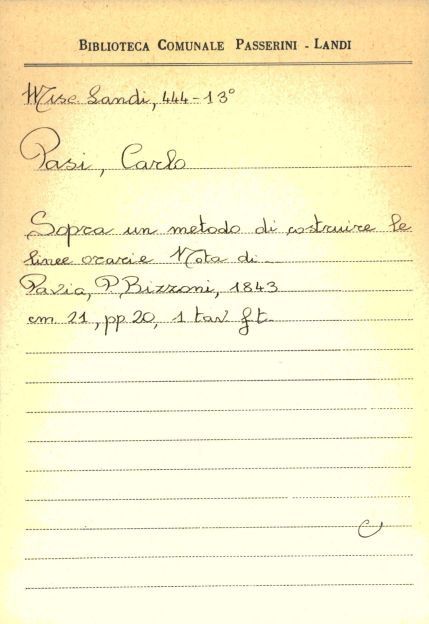 BIBLIOTECA COMUNALE PASSERINI - LANDI
Misc Landi, 444-13°
Pasi, Carlo
Sopra un metodo di costruire le
linee orarie Nota di _
Pavia, P. Bizzoni, 1843
cm 21, pp 20, 1 tav f.t.
C